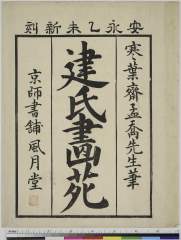 安永乙未新刻
寒葉齋孟喬先生筆
建氏畫苑
京師書舖 風月堂